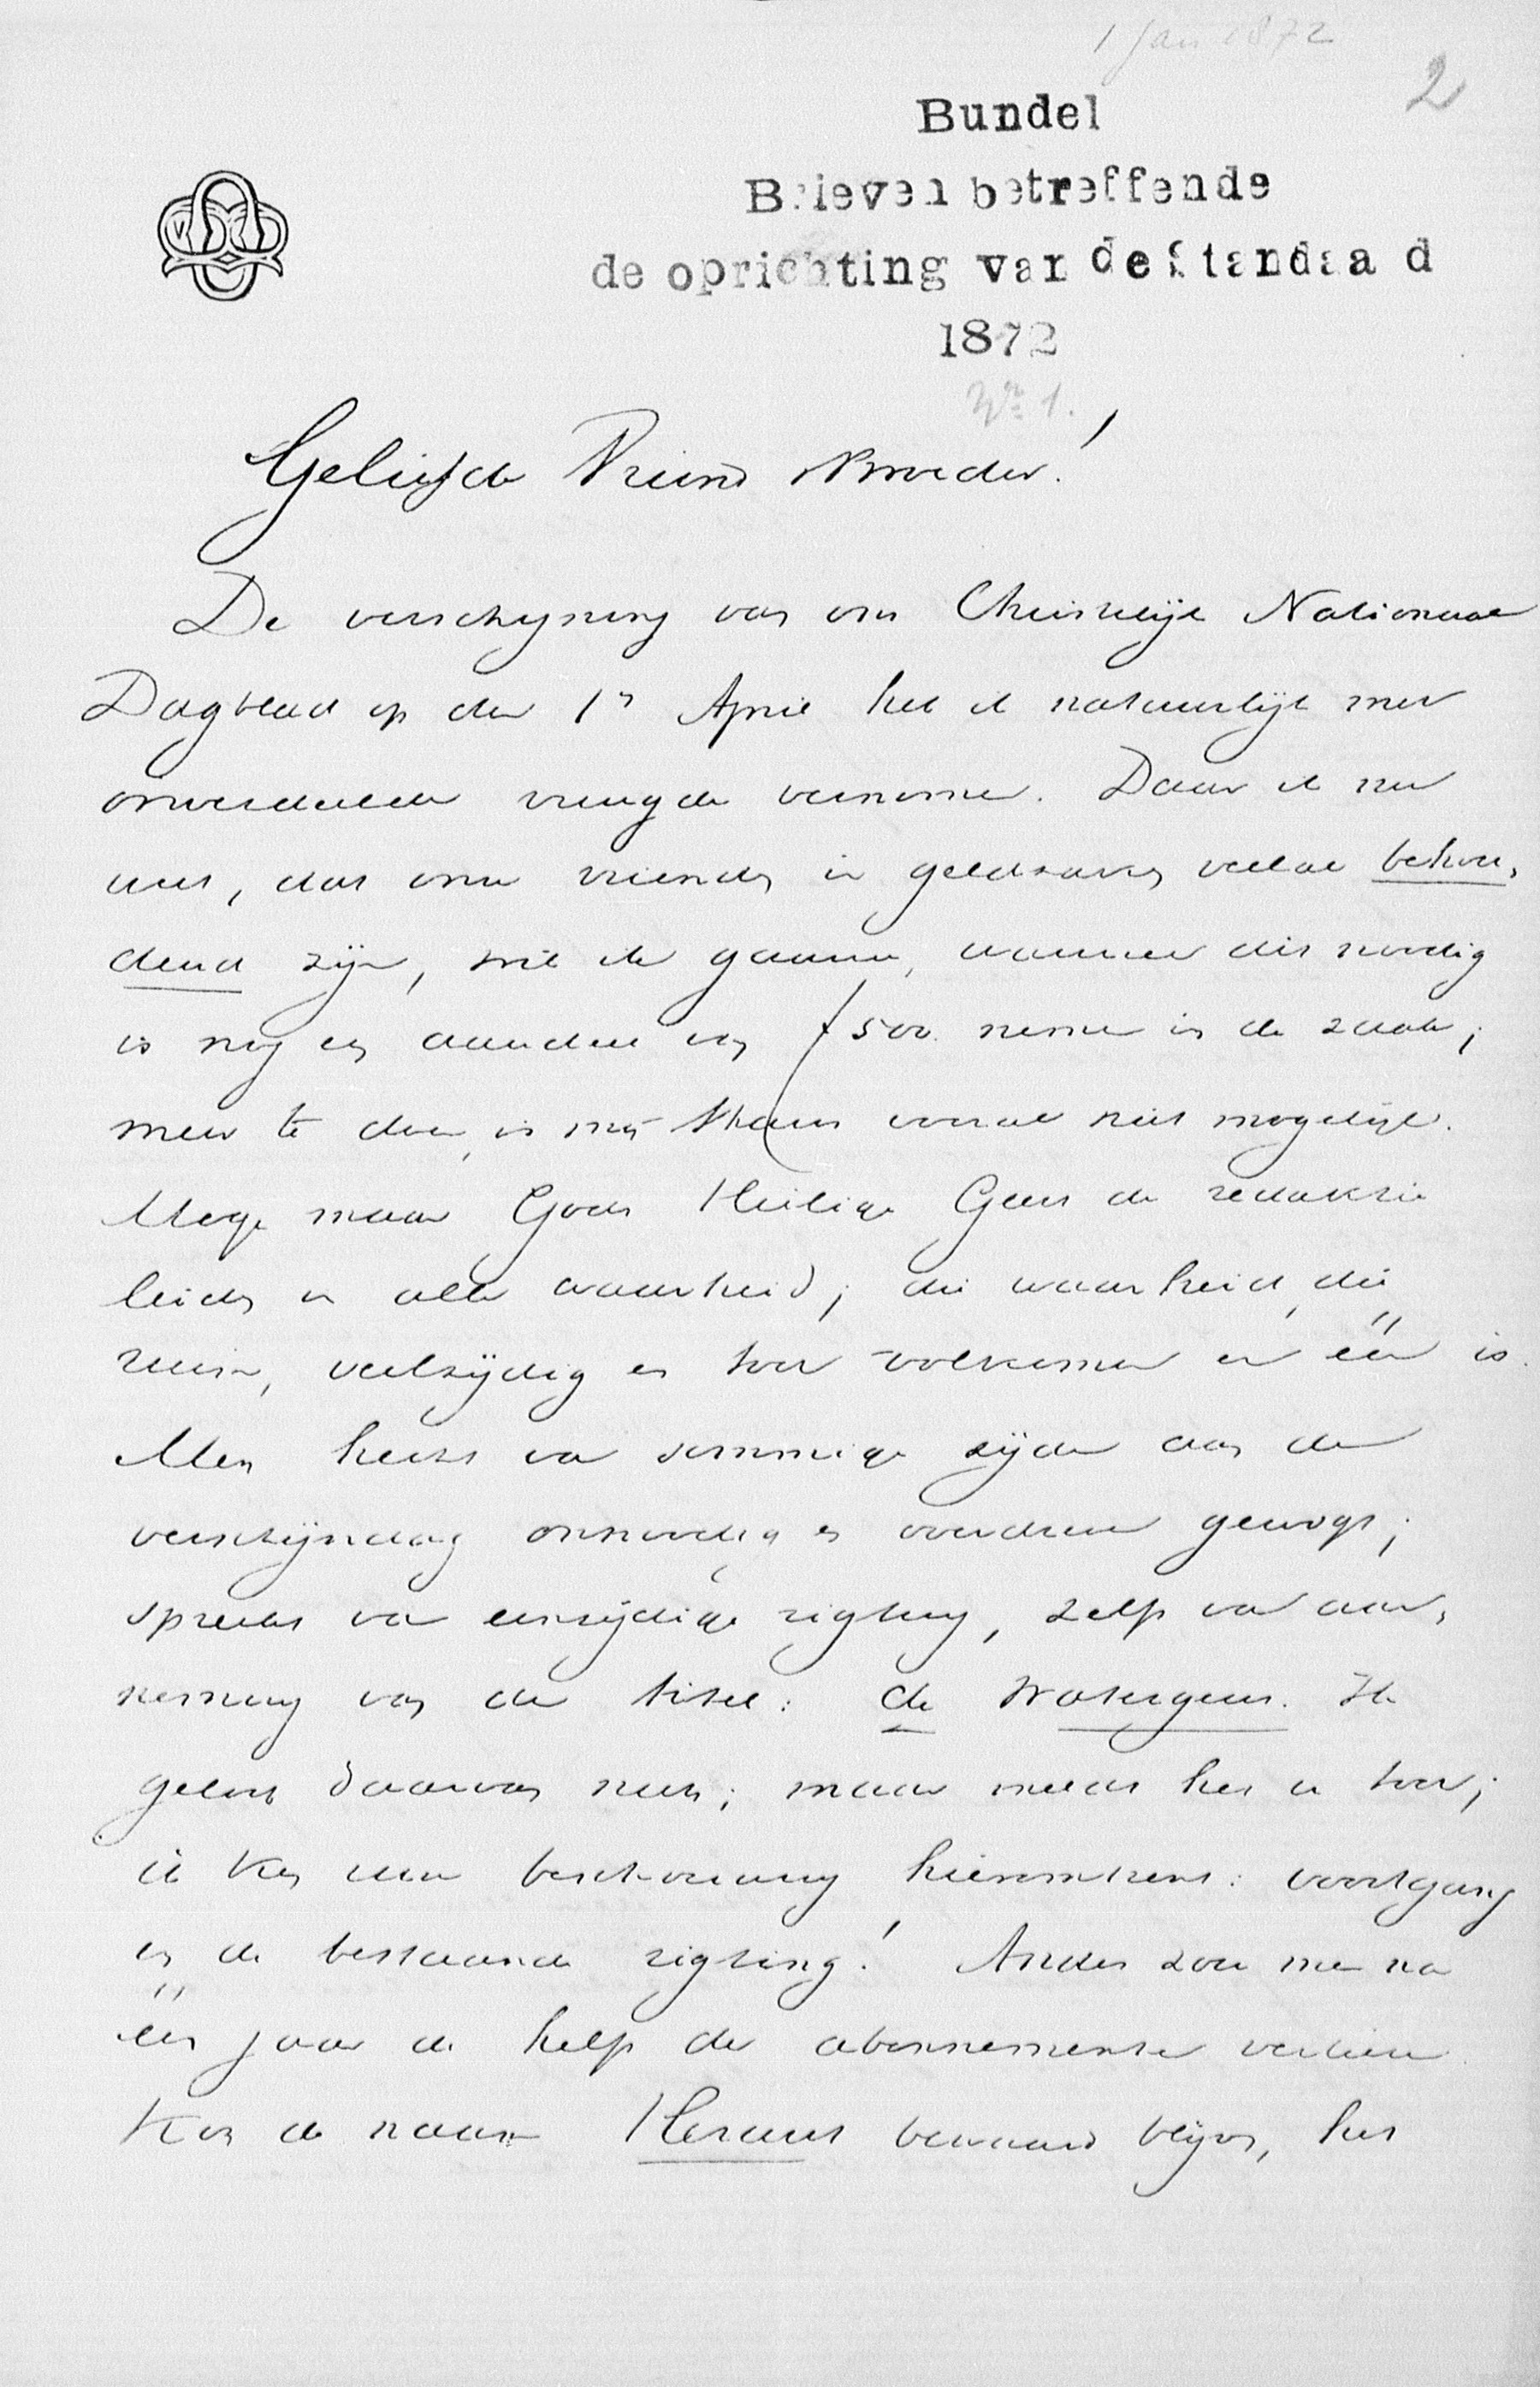 1 Jan 1872
2
Bundel
Brieven betreffende
de oprichting van de Standaard
1872
No 1.
Geliefde Vriend & Broeder!
De verschijning van ons Christelijk Nationaal
Dagblad op den 1n April heb ik natuurlijk met
onverdeelde vreugde vernomen. Daar ik nu
weet, dat onze vrienden in geldzaken veelal behou-
dend zijn, wil ik gaarne, wanneer dit noodig
is nog een aandeel van f 500. nemen in de zaak;
meer te doen, is mij thans vooral niet mogelijk.
Moge maar Gods Heilige Geest de redaktie
leiden in alle waarheid; die waarheid, die
ruim, veelzijdig en toch volkomen en één is.
Men heeft van sommige zijden aan de
verschijndag onnoodig gewigt;
spreekt van eenzijdige rigting, zelfs van aan-
neming van den titel: de Watergeus. Ik
geloof daarvan niets; maar meld het u toch;
ik ken uwe beschouwing hieromtrent: voortgang
in de bestaande rigting! Anders zou men na
één jaar de helft der abonnementen verliezen.
Kon de naam Heraut bewaard blijven, het